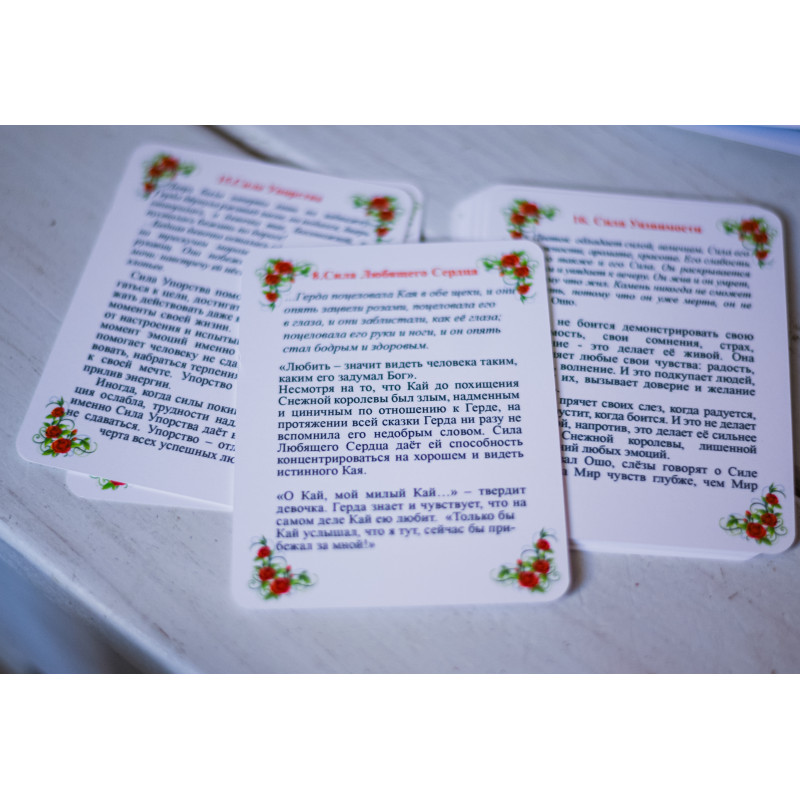 Сила Упорства
Сила Упорства помо
гаться к цели, достигат
жать действовать даже в
моменты своей жизни.
от настроения и испыты
момент эмоций именно
помогает человеку не сда
вовать, набраться терпени
к своей мечте. Упорство
прилив энергии.
Иногда, когда силы поки
ция ослабла, трудности над
именно Сила Упорства даёт в
не сдаваться. Упорство – отл
черта всех успешных лю
8.Сила Любящего Сердца
...Герда поцеловала Кая в обе щеки, и они
опять зацвели розами, поцеловала его
в глаза, и они заблистали, как её глаза;
поцеловала его руки и ноги, и он опять
стал бодрым и здоровым.
«Любить – значит видеть человека таким,
каким его задумал Бог».
Несмотря на то, что Кай до похищения
Снежной королевы был злым, надменным
и циничным по отношению к Герде, на
протяжении всей сказки Герда ни разу не
вспомнила его недобрым словом. Сила
Любящего Сердца даёт ей способность
концентрироваться на хорошем и видеть
истинного Кая.
«О Кай, мой милый Кай…» – твердит
девочка. Герда знает и чувствует, что на
самом деле Кай ею любит. «Только бы
Кай услышал, что я тут, сейчас бы при-
бежал за мной!»
10. Сила Уязвимости
обладает силой, величием. Сила его
аромате, красоте. Его слабость
также и его Сила. Он раскрывается
и увядает к вечеру. Он жив и он умрет,
что жив. Камень никогда не сможет
потому что он уже мертв, он не
Ошо.
не боится демонстрировать свою
мость, свои сомнения, страх,
ние - это делает её живой. Она
яет любые свои чувства: радость,
волнение. И это подкупает людей,
их, вызывает доверие и желание
прячет своих слез, когда радуется,
устит, когда боится. И это не делает
й, напротив, это делает её сильнее
Снежной королевы, лишенной
ний любых эмоций.
ал Ошо, слёзы говорят о Силе
а Мир чувств глубже, чем Мир